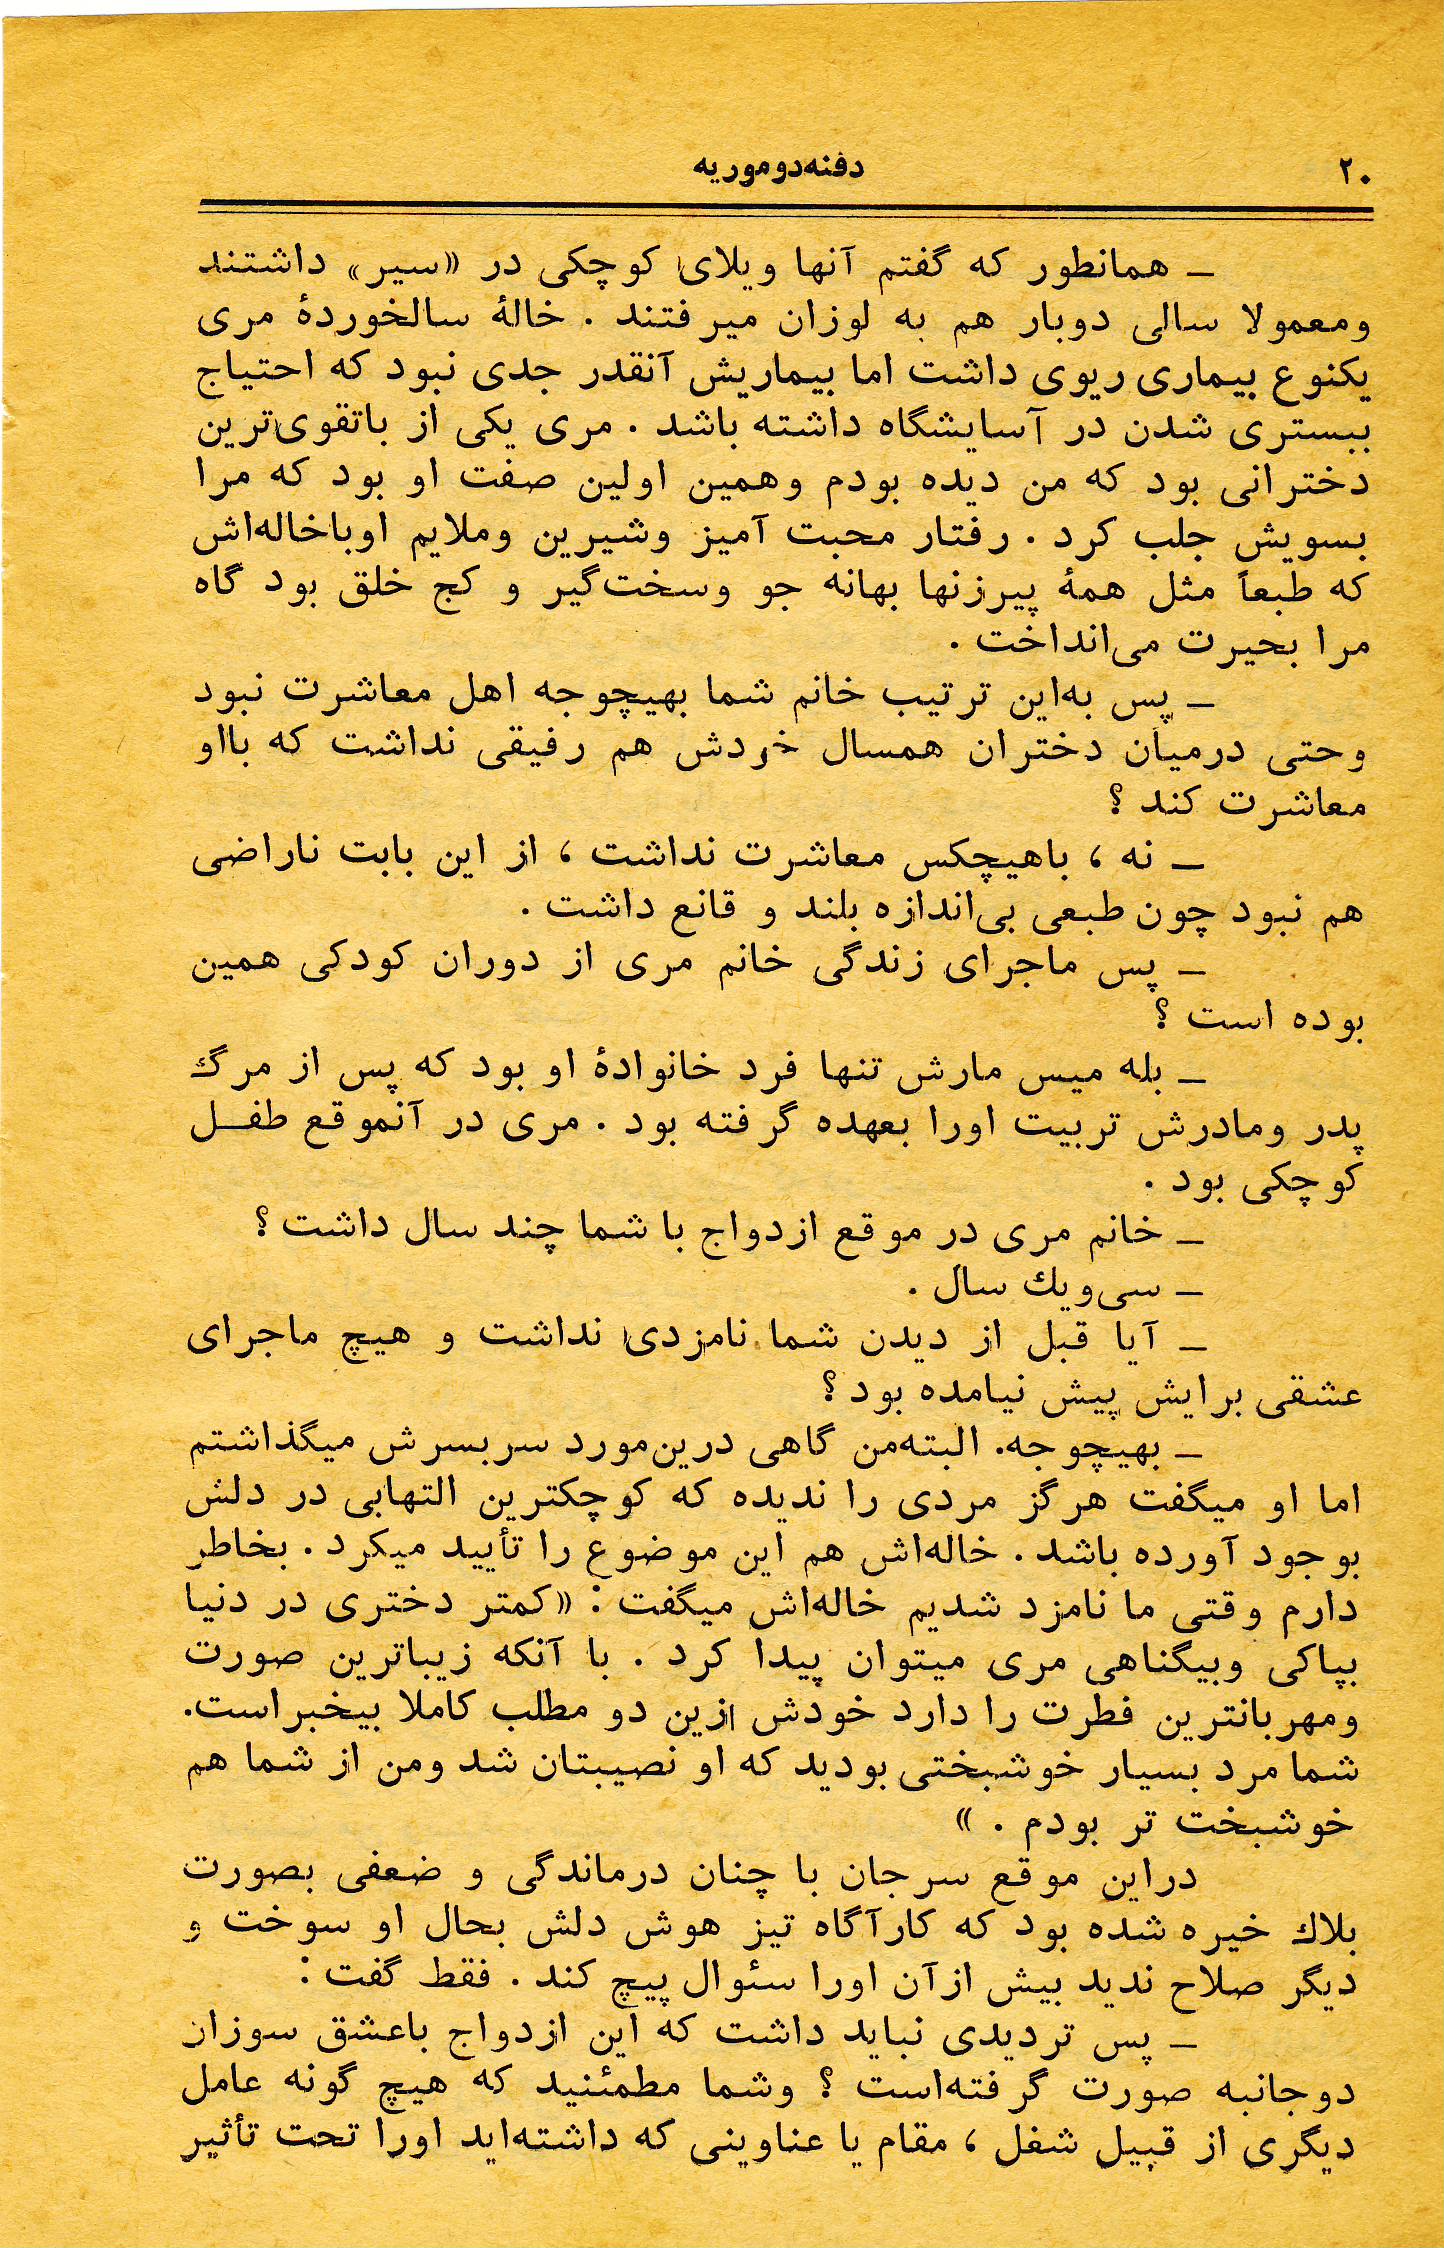 ۲۰
دفنه‌دوموریه
ـ همانطور که گفتم آنها ویلای کوچکی در «سیر» داشتند
ومعمولا سالی دوبار هم به لوزان میرفتند . خالهٔ سالخوردهٔ مری
یکنوع بیماری ریوی داشت اما بیماریش آنقدر جدی نبود که احتیاج
ببستری شدن در آسایشگاه داشته باشد . مری یکی از باتقوی‌ترین
دخترانی بود که من دیده بودم وهمین اولین صفت او بود که مرا
بسویش جلب کرد . رفتار محبت آمیز وشیرین وملایم اوباخاله‌اش
که طبعاً مثل همهٔ پیرزنها بهانه جو وسخت‌گیر و کج خلق بود گاه
مرا بحیرت می‌انداخت .
ـ پس به‌این ترتیب خانم شما بهیچوجه اهل معاشرت نبود
وحتی درمیان دختران همسال خودش هم رفیقی نداشت که بااو
معاشرت کند ؟
ـ نه ، باهیچکس معاشرت نداشت ، از این بابت ناراضی
هم نبود چون طبعی بی‌اندازه بلند و قانع داشت .
ـ پس ماجرای زندگی خانم مری از دوران کودکی همین
بوده است ؟
ـ بله میس مارش تنها فرد خانوادهٔ او بود که پس از مرگ
پدر ومادرش تربیت اورا بعهده گرفته بود . مری در آنموقع طفـل
کوچکی بود .
ـ خانم مری در موقع ازدواج با شما چند سال داشت ؟
ـ سی‌ویك سال .
ـ آیا قبل از دیدن شما نامزدی نداشت و هیچ ماجرای
عشقی برایش پیش نیامده بود ؟
ـ بهیچوجه. البته‌من گاهی درین‌مورد سربسرش میگذاشتم
اما او میگفت هرگز مردی را ندیده که کوچکترین التهابی در دلش
بوجود آورده باشد . خاله‌اش هم این موضوع را تأیید میکرد . بخاطر
دارم وقتی ما نامزد شدیم خاله‌اش میگفت : «کمتر دختری در دنیا
بپاکی وبیگناهی مری میتوان پیدا کرد . با آنکه زیباترین صورت
ومهربانترین فطرت را دارد خودش ازین دو مطلب کاملا بیخبراست.
شما مرد بسیار خوشبختی بودید که او نصیبتان شد ومن از شما هم
خوشبخت تر بودم . »
دراین موقع سرجان با چنان درماندگی و ضعفی بصورت
بلاك خیره شده بود که کارآگاه تیز هوش دلش بحال او سوخت و
دیگر صلاح ندید بیش ازآن اورا سئوال پیچ کند . فقط گفت :
ـ پس تردیدی نباید داشت که این ازدواج باعشق سوزان
دوجانبه صورت گرفته‌است ؟ وشما مطمئنید که هیچ گونه عامل
دیگری از قبیل شغل ، مقام یا عناوینی که داشته‌اید اورا تحت تأثیر